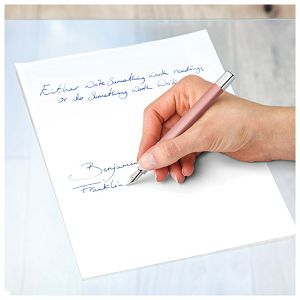 Either write something worth reading,
or do something worth writing
Benjamin
Franklin